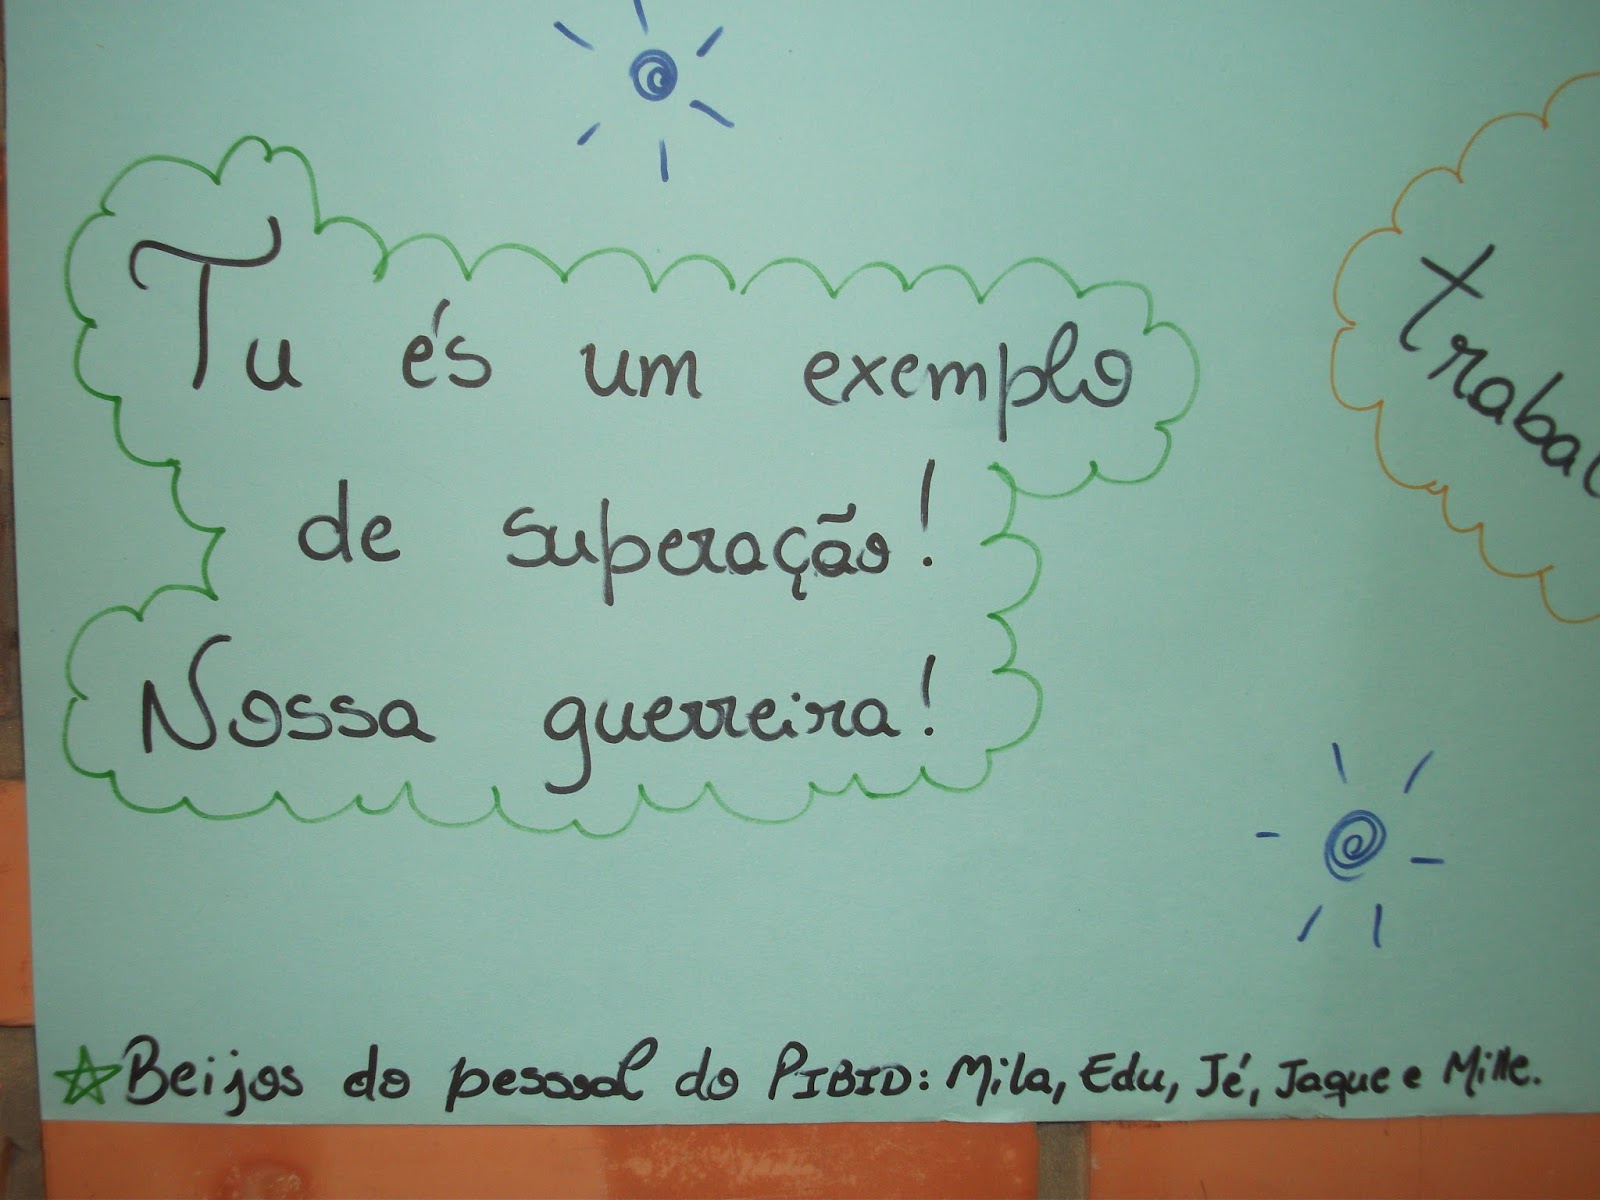 Tu és um exemplo
de superação!
Nossa guerreira!
Beijos do pessoal do PIBID: Mila, Edu, Jé, Jaque e Mille.